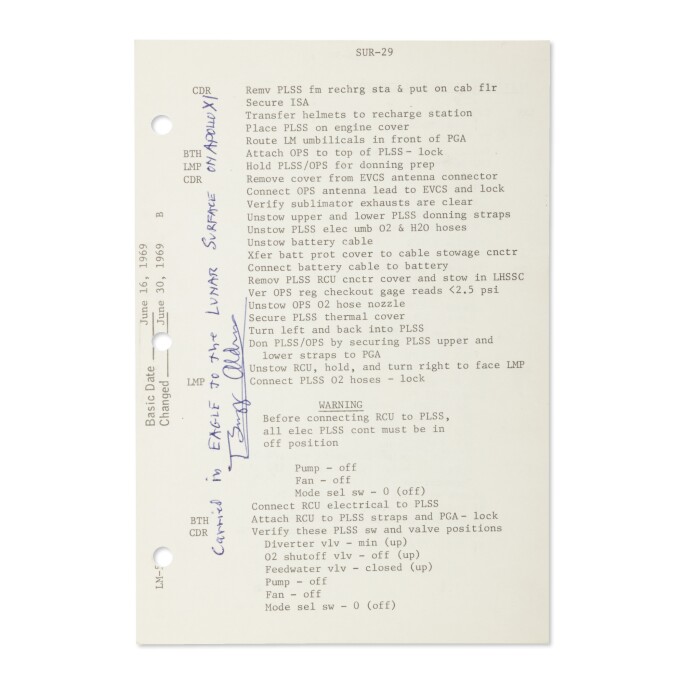 SUR-29
CDR Remv PLSS fm rechrg sta & put on cab flr
Secure ISA
Transfer helmets to recharge station
Place PLSS on engine cover
Route LM umbilicals in front of PGA
BTH Attach OPS to top of PLSS - lock
LMP Hold PLSS/OPS for donning prep
CDR Remove cover from EVCS antenna connector
Connect OPS antenna lead to EVCS and lock
Verify sublimator exhausts are clear
Unstow upper and lower PLSS donning straps
Unstow PLSS elec umb O2 & H2O hoses
Unstow battery cable
Xfer batt prot cover to cable stowage cnctr
Connect battery cable to battery
Remov PLSS RCU cnctr cover and stow in LHSSC
Ver OPS reg checkout gage reads <2.5 psi
Unstow OPS O2 hose nozzle
Secure PLSS thermal cover
Turn left and back into PLSS
Don PLSS/OPS by securing PLSS upper and
lower straps to PGA
Unstow RCU, hold, and turn right to face LMP
LMP Connect PLSS O2 hoses - lock
WARNING
Before connecting RCU to PLSS,
all elec PLSS cont must be in
off position
Pump - off
Fan - off
Mode sel sw - 0 (off)
Connect RCU electrical to PLSS
BTH Attach RCU to PLSS straps and PGA - lock
CDR Verify these PLSS sw and valve positions
Diverter vlv - min (up)
O2 shutoff vlv - off (up)
Feedwater vlv - closed (up)
Pump - off
Fan - off
Mode sel sw - 0 (off)
Basic Date June 16, 1969
Changed June 30, 1969 B
Carried in EAGLE TO the LUNAR SURFACE ON APOLLO XI
Buzz Aldrin